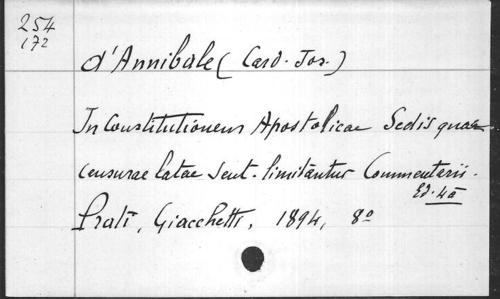 254
172
d'Annibale (Card. Jos.)
In Constitutionem Apostolicae Sedis quae
censurae latae sent. limitantur Commentarii.
Ed. 4a
Prati, Giacchetti, 1894, 8o